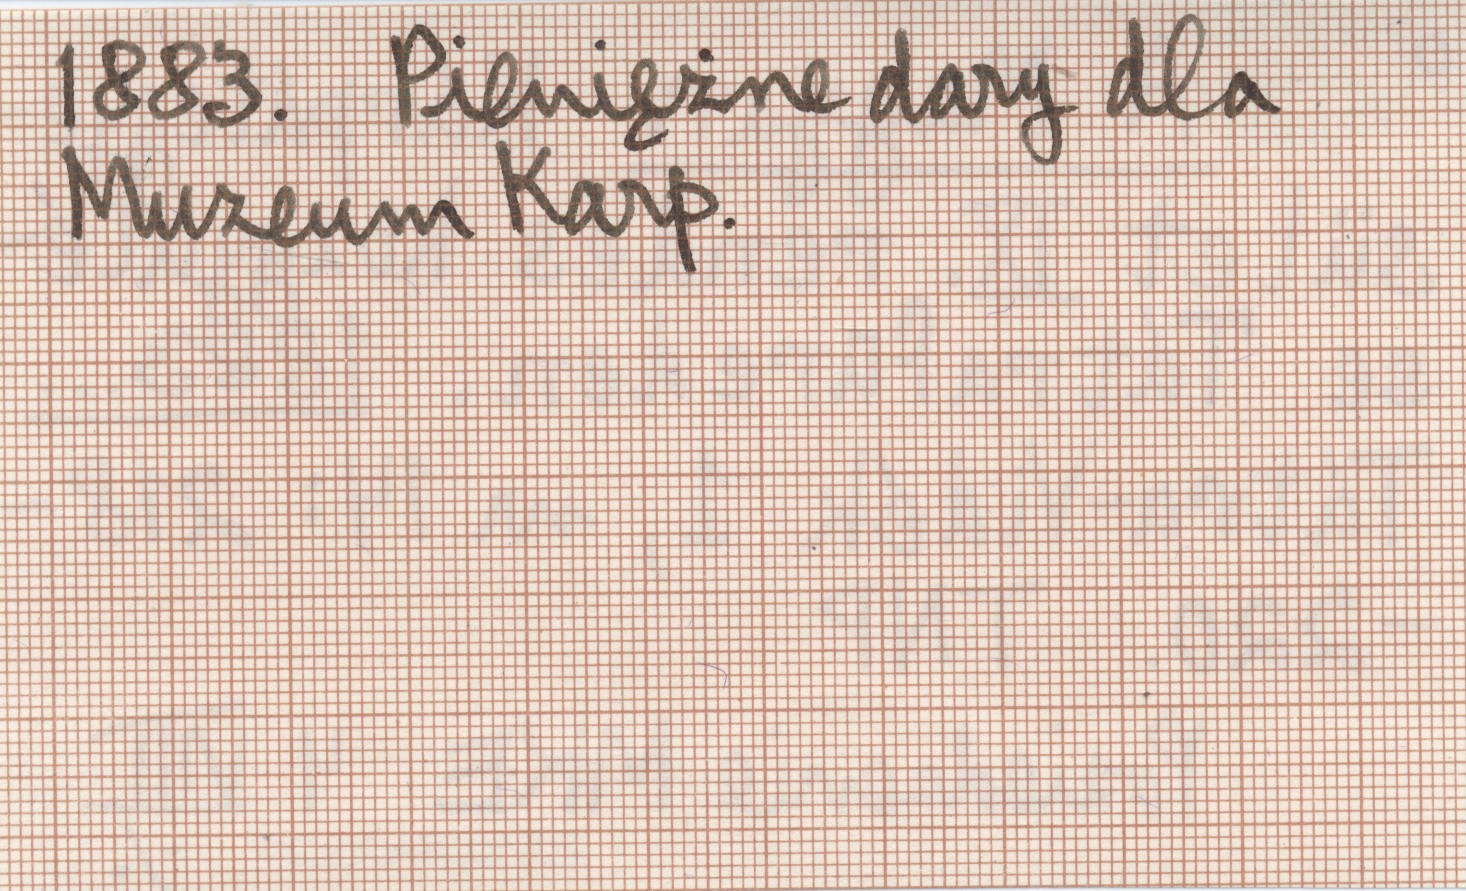 1883. Pieniężne dary dla
Muzeum Karp.